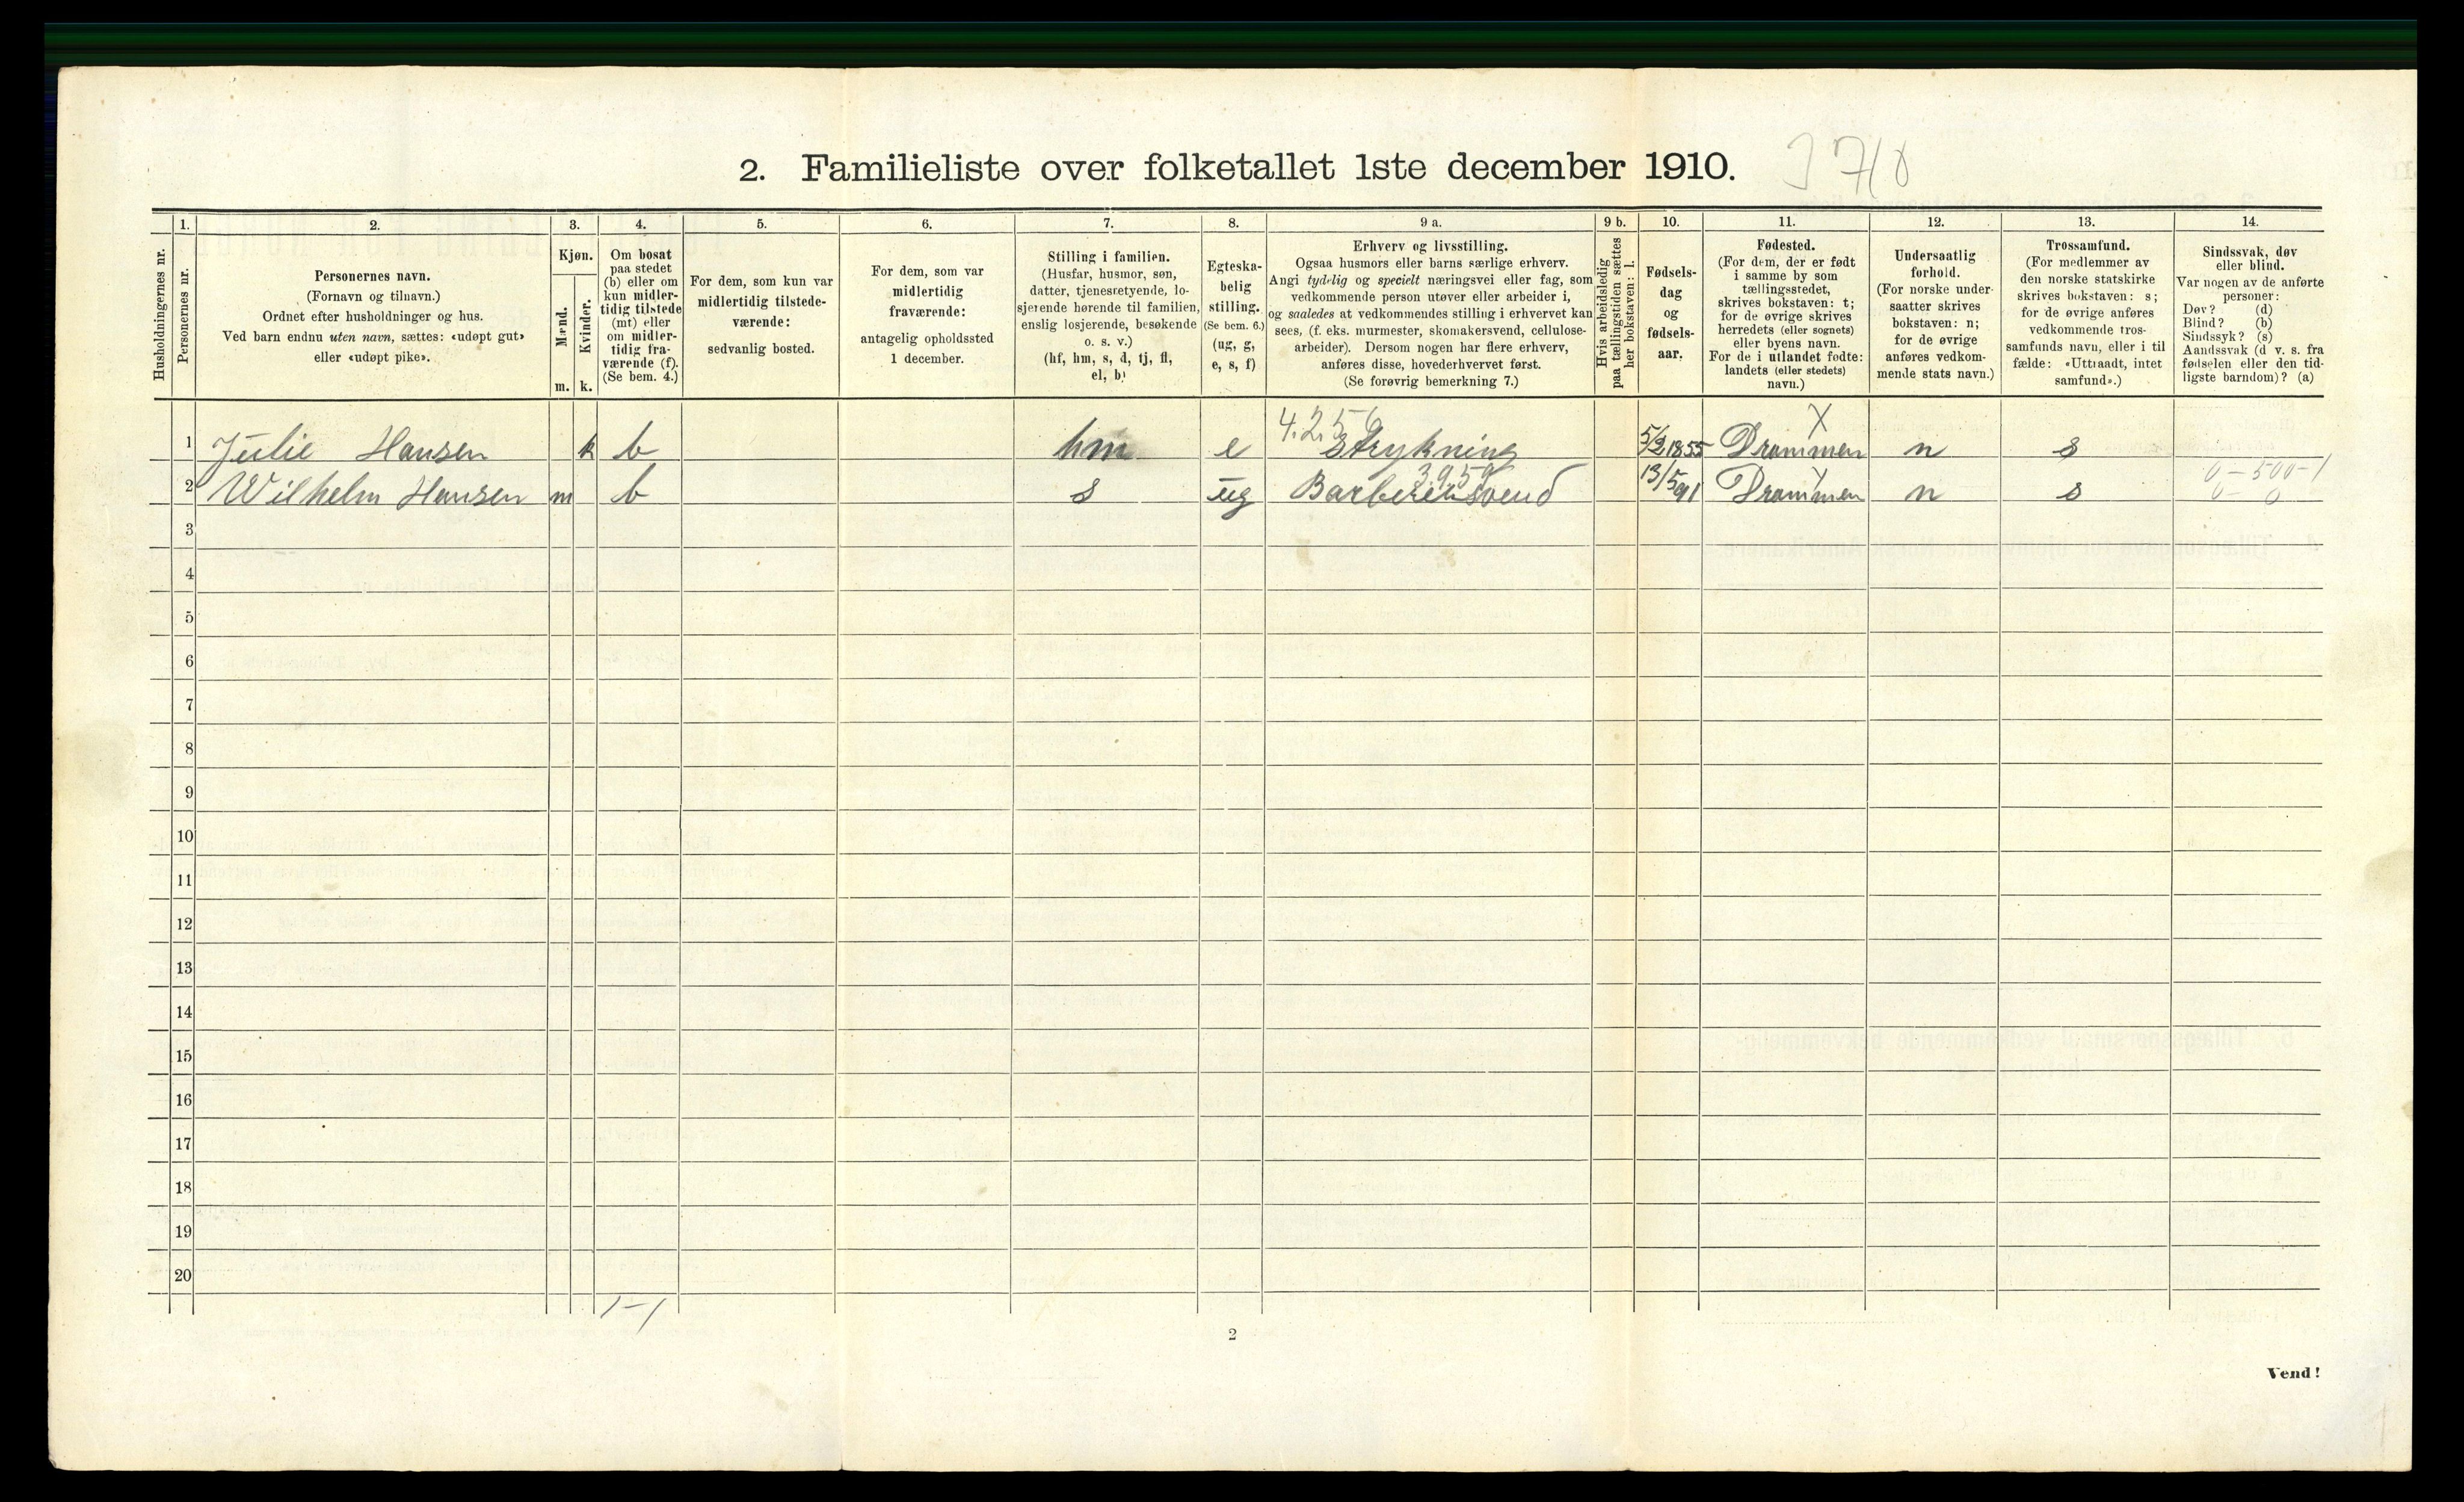 2. Familieliste over folketallet 1ste december 1910.
1. 2. 3. 4. 5. 6. 7. 8. 9 a. 9 b. 10. 11. 12. 13. 14.
Husholdningernes nr.
Personernes nr.
Personernes navn.
(Fornavn og tilnavn.)
Ordnet efter husholdninger og hus.
Ved barn endnu uten navn, sættes: «udøpt gut»
eller «udøpt pike».
Kjøn.
Mænd.
m.
Kvinder.
k.
Om bosat
paa stedet
(b) eller om
kun midler-
tidig tilstede
(mt) eller
om midler-
tidig fra-
værende (f).
(Se bem. 4.)
For dem, som kun var
midlertidig tilstede-
værende:
sedvanlig bosted.
For dem, som var
midlertidig
fraværende:
antagelig opholdssted
1 december.
Stilling i familien.
(Husfar, husmor, søn,
datter, tjenestetyende, lo-
sjerende hørende til familien,
enslig losjerende, besøkende
o. s. v.)
(hf, hm, s, d, tj, fl,
el, b)
Egteska-
belig
stilling.
(Se bem. 6.)
(ug, g,
e, s, f)
Erhverv og livsstilling.
Ogsaa husmors eller barns særlige erhverv.
Angi tydelig og specielt næringsvei eller fag, som
vedkommende person utøver eller arbeider i,
og saaledes at vedkommendes stilling i erhvervet kan
sees, (f. eks. murmester, skomakersvend, cellulose-
arbeider). Dersom nogen har flere erhverv,
anføres disse, hovederhvervet først.
(Se forøvrig bemerkning 7.)
Hvis arbeidsledig
paa tællingstiden sættes
her bokstaven: l.
Fødsels-
dag
og
fødsels-
aar.
Fødested.
(For dem, der er født
i samme by som
tællingsstedet,
skrives bokstaven: t;
for de øvrige skrives
herredets (eller sognets)
eller byens navn.
For de i utlandet fødte:
landets (eller stedets)
navn.)
Undersaatlig
forhold.
(For norske under-
saatter skrives
bokstaven: n;
for de øvrige
anføres vedkom-
mende stats navn.)
Trossamfund.
(For medlemmer av
den norske statskirke
skrives bokstaven: s;
for de øvrige anføres
vedkommende tros-
samfunds navn, eller i til
fælde: «Uttraadt, intet
samfund».)
Sindssvak, døv
eller blind.
Var nogen av de anførte
personer:
Døv? (d)
Blind? (b)
Sindssyk? (s)
Aandssvak (d v. s. fra
fødselen eller den tid-
ligste barndom)? (a)
4.2.5
X
1 Julie Hansen k b hm e Strykning 5/2 1855 Drammen n s
0-500-1
2 Wilhelm Hansen m b s ug Barberersvend 13/5 91 Drammen n s
0- 0
3
4
5
6
7
8
9
10
11
12
13
14
15
16
17
18
19
20
1-1
2
Vend!